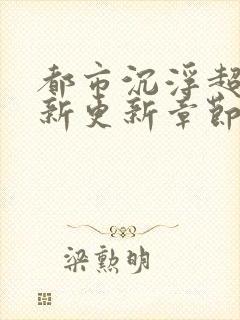 都市沉浮超
新更新章節
梁勲明